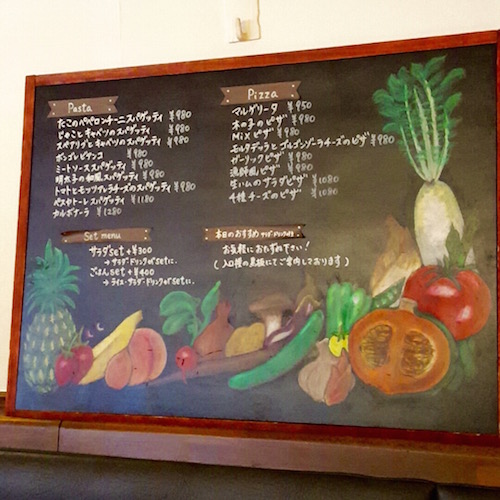 Pasta
たこのペペロンチーニスパゲッティ ¥980
じゃことキャベツのスパゲッティ ¥980
スペアリブとキャベツのスパゲッティ ¥980
ボンゴレビアンコ ¥980
ミートソーススパゲッティ ¥980
明太子の和風スパゲッティ ¥980
トマトとモッツァレラチーズのスパゲッティ ¥980
ペスカトーレスパゲッティ ¥1180
カルボナーラ ¥1280
Pizza
マルゲリータ ¥950
木の子のピザ ¥980
Mixピザ ¥980
モルタデッラとゴルゴンゾーラチーズのピザ ¥980
ガーリックピザ ¥980
漁師風ピザ ¥980
生ハムのサラダピザ ¥1080
4種チーズのピザ ¥1080
Set menu
サラダset +¥300
→サラダ・ドリンクがsetに.
ごはんset +¥400
→ライス・サラダ・ドリンクがsetに.
本日のおすすめ
お気軽におたずね下さい!
(入口横の黒板にてご案内しております)